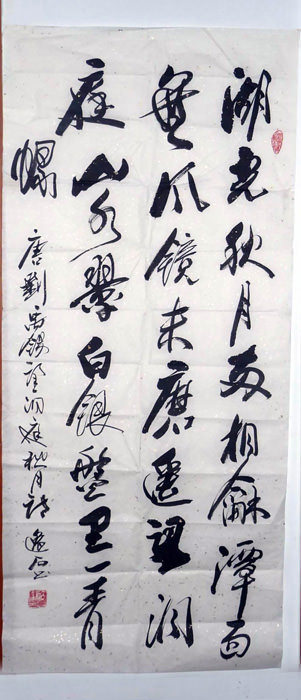 湖光秋月两相龢潭面
無风镜未磨遥望洞
庭山水翠白银盘里一青
螺
唐劉禹锡望洞庭秋月诗